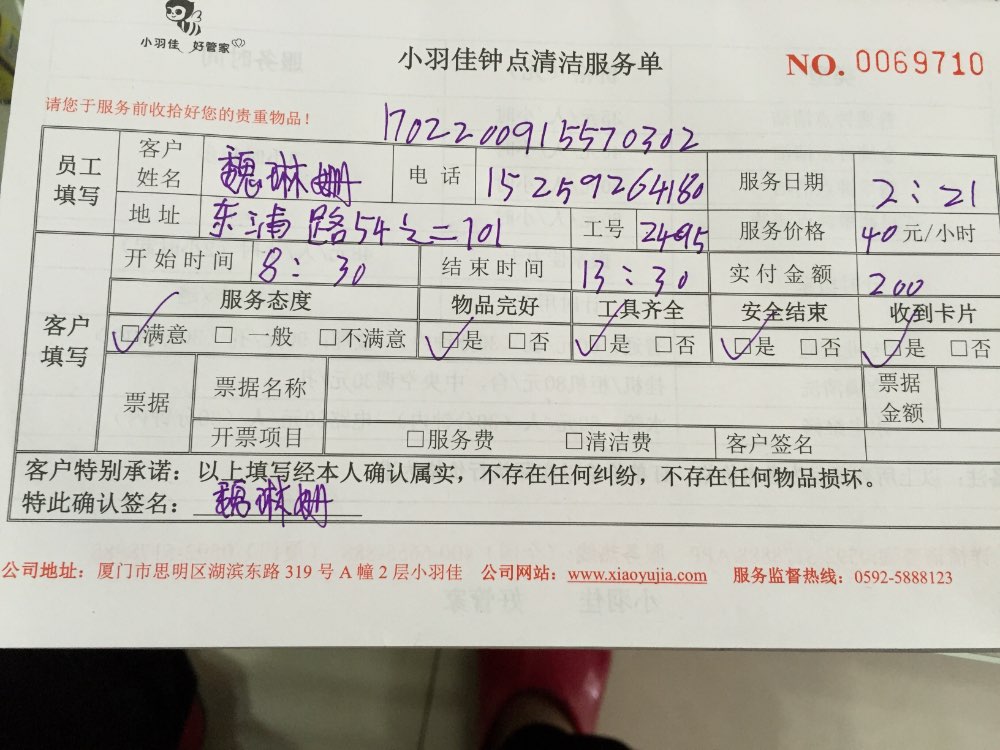 小羽佳 好管家
小羽佳钟点清洁服务单
NO. 0069710
请您于服务前收拾好您的贵重物品！
1702200915570302
员工填写 客户姓名 魏琳姗 电话 15259264180 服务日期 2：21
地址 东浦路54之二701 工号 2495 服务价格 40元/小时
客户填写 开始时间 8：30 结束时间 13：30 实付金额 200
服务态度 物品完好 工具齐全 安全结束 收到卡片
☑满意 □一般 □不满意 ☑是 □否 ☑是 □否 ☑是 □否 ☑是 □否
票据 票据名称 票据金额
开票项目 □服务费 □清洁费 客户签名
客户特别承诺：以上填写经本人确认属实，不存在任何纠纷，不存在任何物品损坏。
特此确认签名：魏琳姗
公司地址：厦门市思明区湖滨东路 319 号 A 幢 2 层小羽佳 公司网站：www.xiaoyujia.com 服务监督热线：0592-5888123